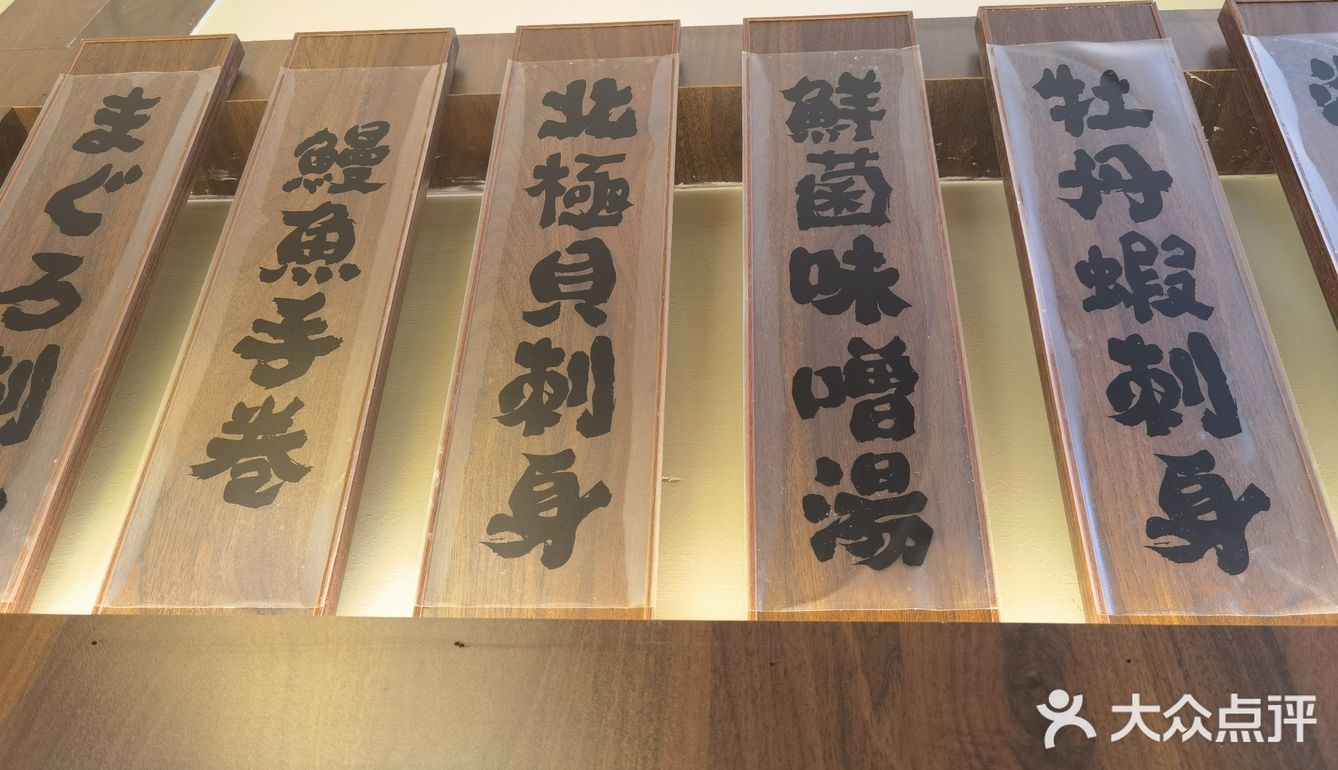 まぐろ刺
鰻魚手卷
北極貝刺身
鮮菌味噌湯
牡丹蝦刺身
大众点评